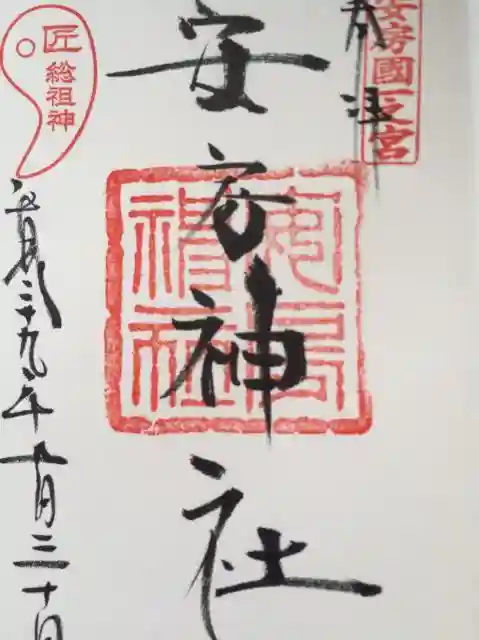 奉拝
安房國一之宮
安房神社
安房神社
匠
総祖神
平成二十九年九月三十日